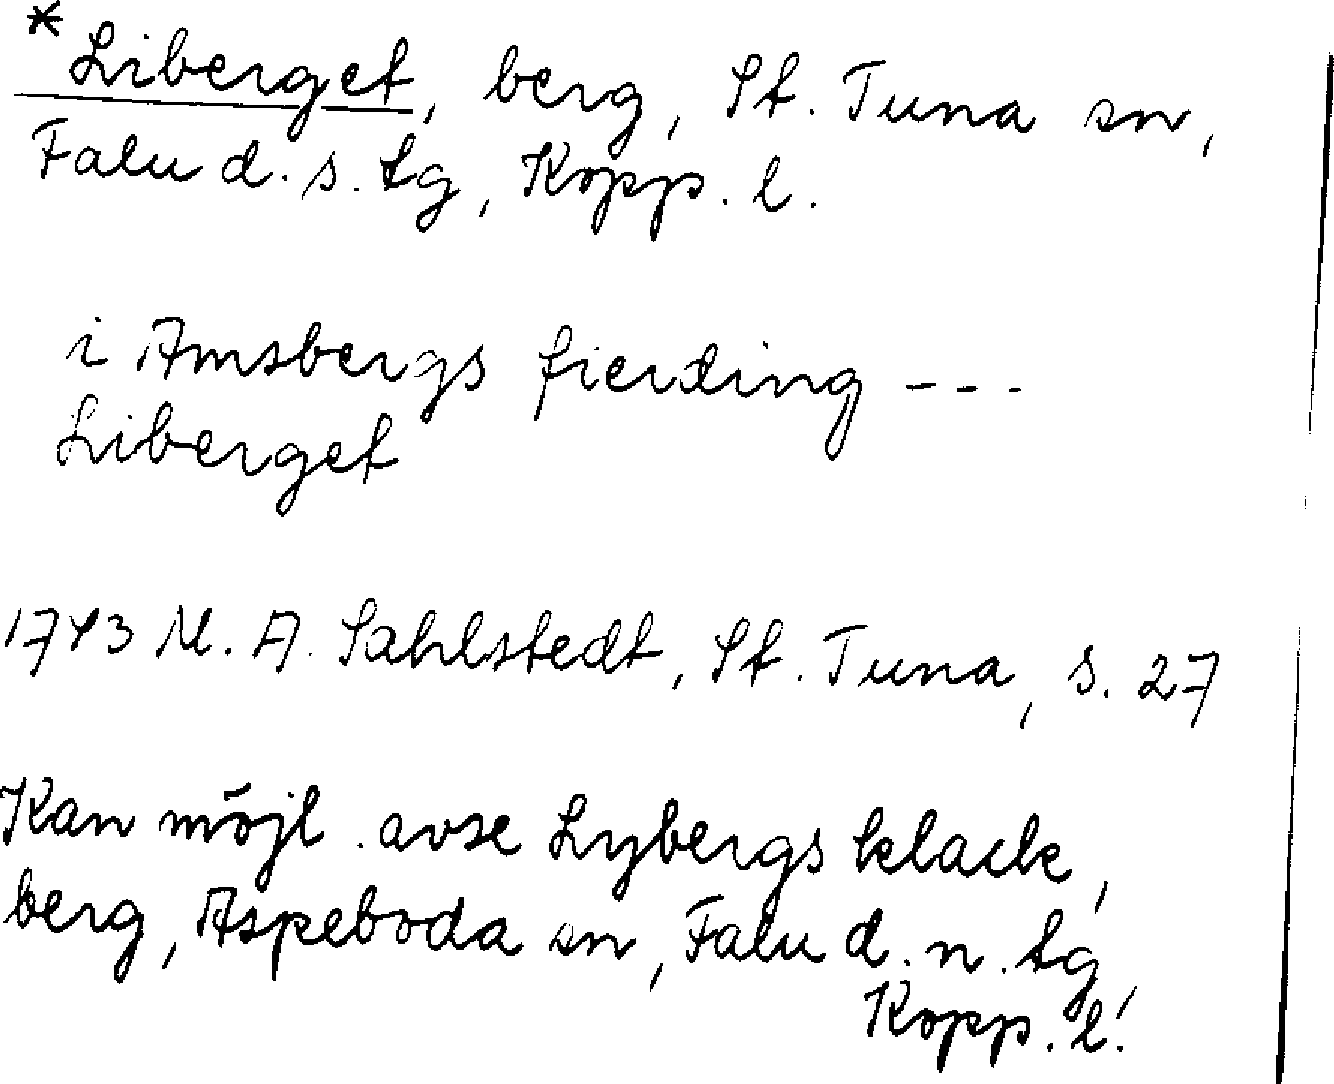 * Liberget, berg, St. Tuna sn,
Falu d. s. tg, Kopp. l.
i Amsbergs fierding ---
Liberget
1743 M. A. Sahlstedt, St. Tuna, s. 27
Kan möjl. avse Lybergs klack,
berg, Aspeboda sn, Falu d. n. tg,
Kopp. l.